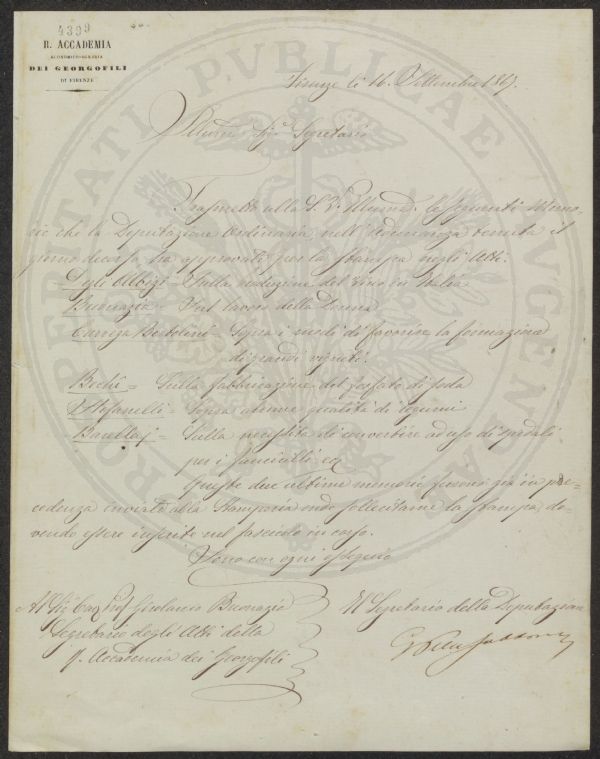 4399
R. ACCADEMIA
ECONOMICO-AGRARIA
DEI GEORGOFILI
DI FIRENZE
PROSPERITATI PUBLICAE AUGENDAE
Firenze lì 16. Settembre 1867.
Sig.r Segretario
Trasmetto alla S. V. Illma le seguenti Memo-
rie che la Deputazione Ordinaria nell' adunanza tenuta il
giorno decorso ha approvate per la stampa negli Atti:
Degli Albizi = Sulla del Vino in Italia
Buonazia = Sul lavoro della Donna
Carega Bertolini = Sopra i modi di favorire la formazione
di grandi vigneti.
Bechi = Sulla fabbricazione del fosfato di soda
Stefanelli = Sopra alcune qualità di legumi
Barellaj = Sulla necessità di convertire ad uso di spedali
per i fanciulli
Queste due ultime memorie furono già in pre-
cedenza inviate alla Stamperia onde sollecitarne la stampa do-
vendo essere inserite nel fascicolo in corso.
Sono con ogni ossequio
Al Sig. Cav. Prof. Girolamo Buonazia
Segretario degli Atti della
R. Accademia dei Georgofili
Il Segretario della Deputazione